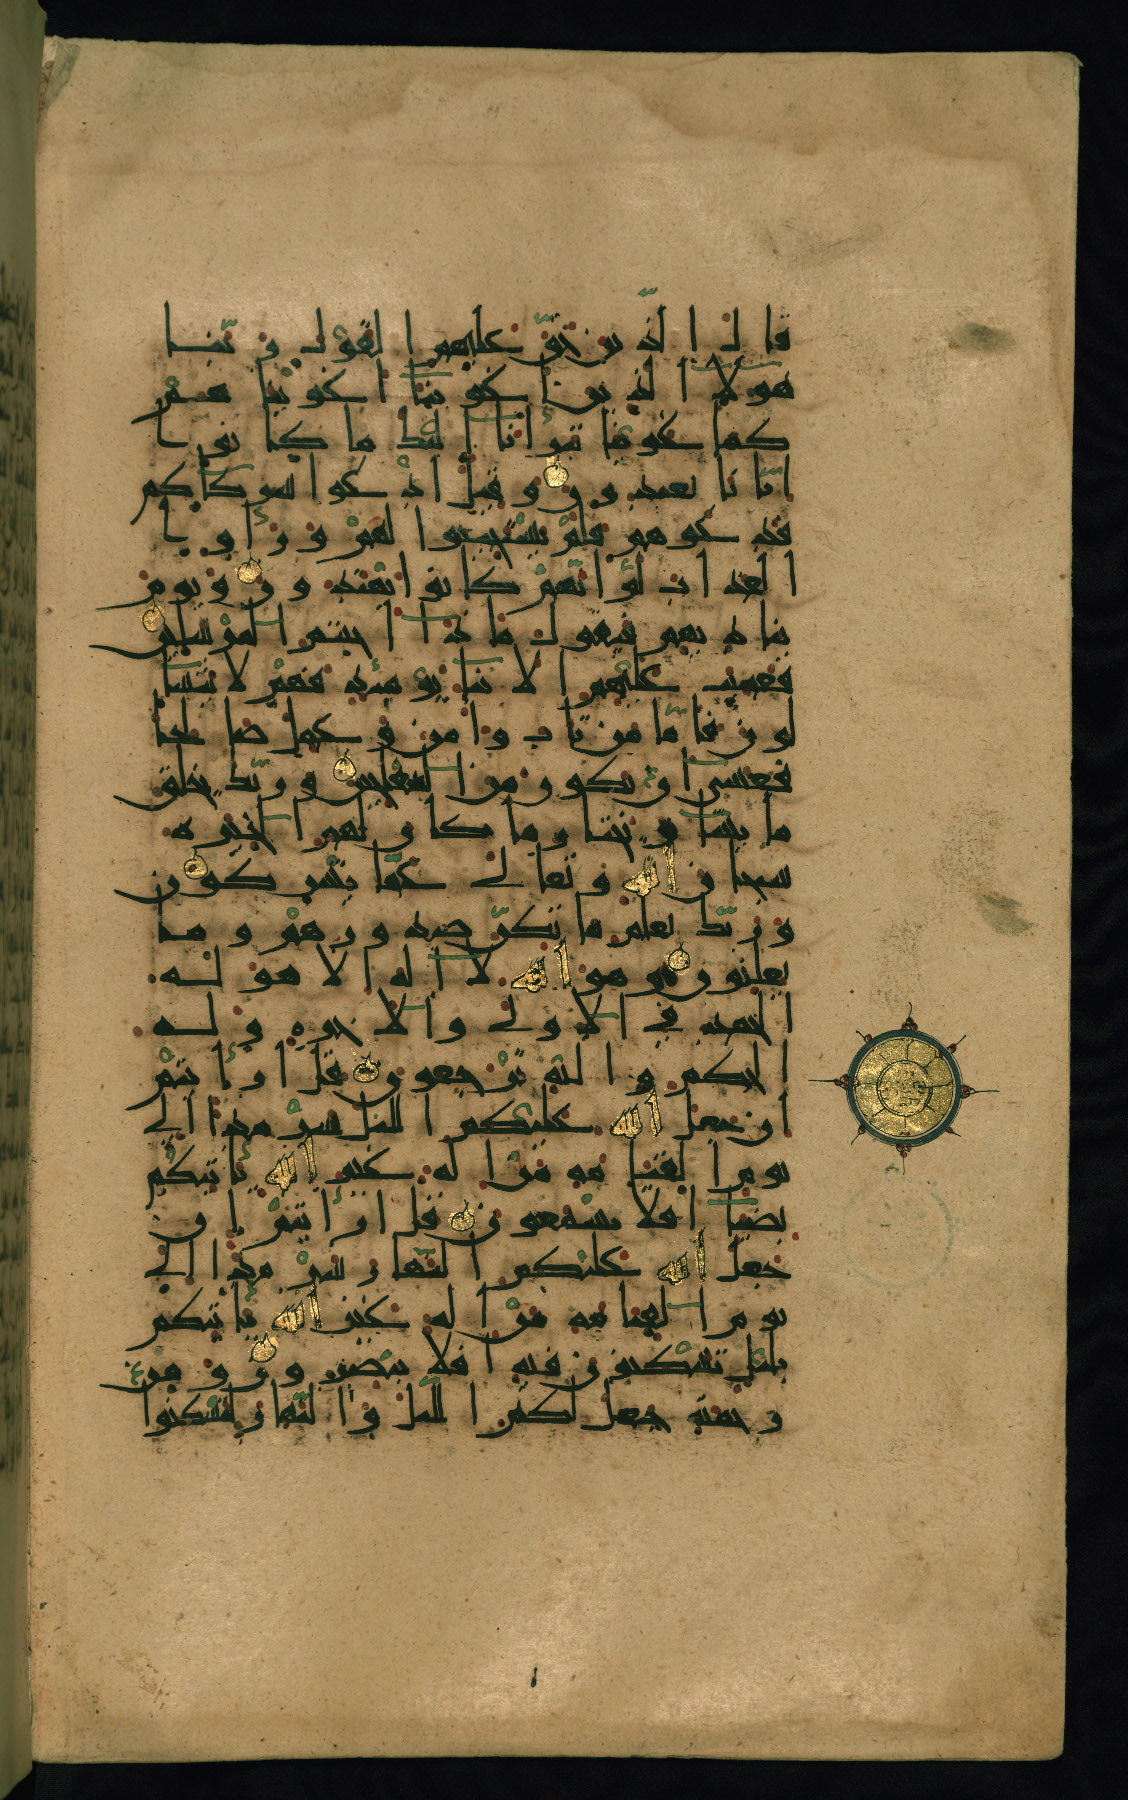 قال الذين حق عليهم القول ربنا
هولا الذين اغوينا اغوينهم
كما غوينا تبرانا اليك ما كانوا
ايانا يعبدون وقيل ادعوا شركاكم
فدعوهم فلم يستجيبوا لهم وراوا
العذاب لو انهم كانوا يهتدون ويوم
يناديهم فيقول ماذا اجبتم المرسلين
فعميت عليهم الانبا يوميذ فهم لا يتسا
لون فاما من تاب وامن وعمل صالحا
فعسى ان يكون من المفلحين وربك يخلق
ما يشا ويختار ما كان لهم الخيره
سبحان الله وتعالى عما يشركون
وربك يعلم ما تكن صدورهم وما
يعلنون وهو الله لا اله الا هو له
الحمد في الاولى والاخره وله
الحكم واليه ترجعون قل ارايتم
ان جعل الله عليكم الليل سرمدا الى
يوم القيامه من اله غير الله ياتيكم
بضيا افلا تسمعون قل ارايتم ان
جعل الله عليكم النهار سرمدا الى
يوم القيامه من اله غير الله ياتيكم
بليل تسكنون فيه افلا تبصرون ومن
رحمته جعل لكم الليل والنهار لتسكنوا
١